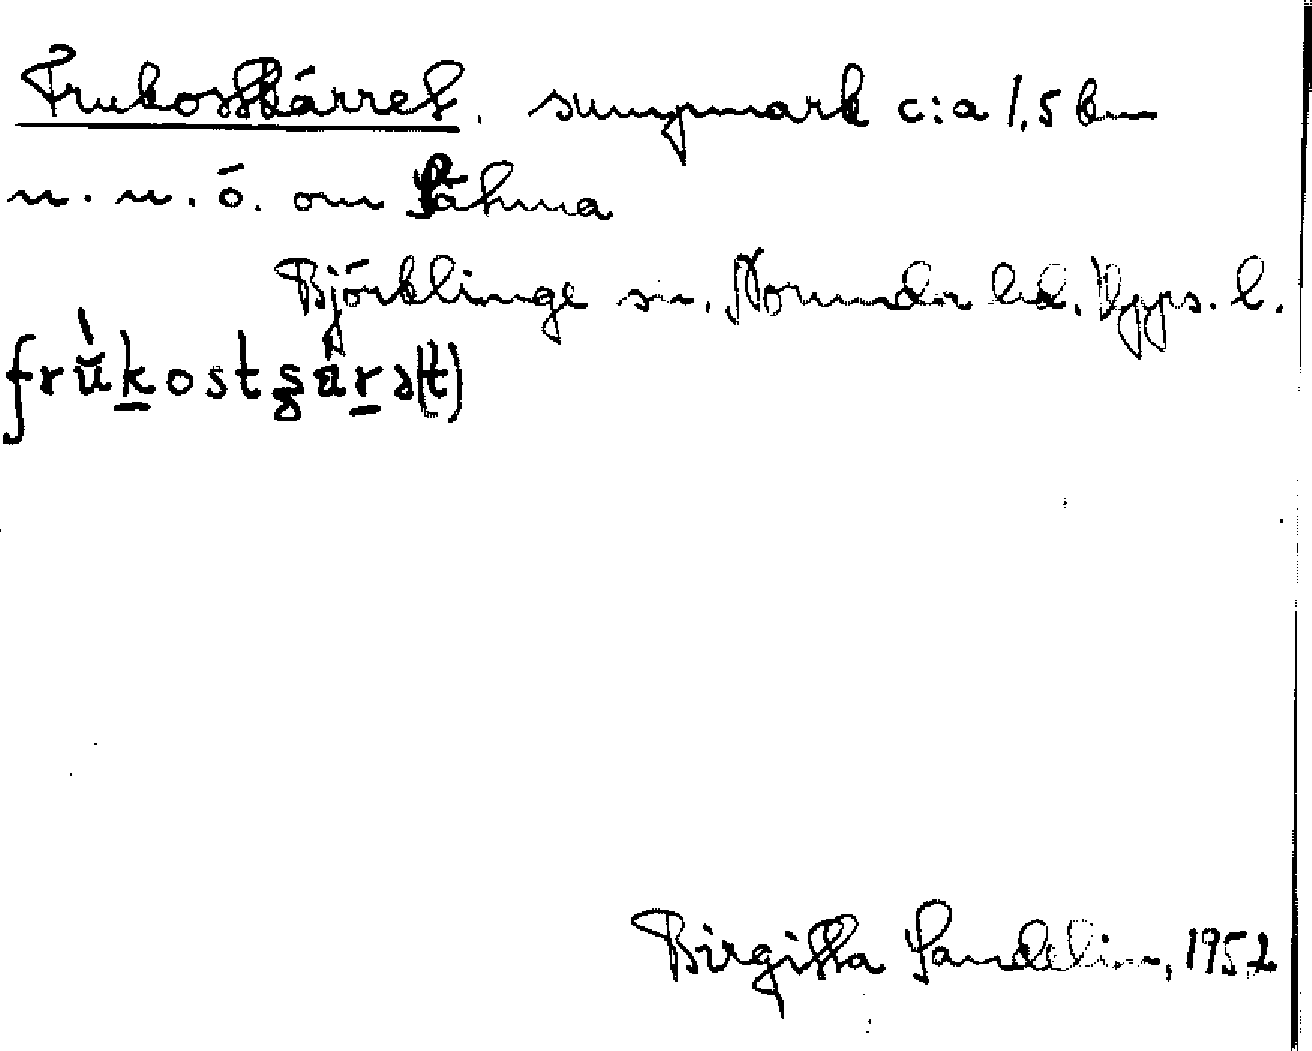 Frukostkärret. sumpmark c:a 1,5 km
n. n. ö. om Såhma
Björklinge sn. Norunda hd. Upps. l.
Birgitta Sandelin, 1952